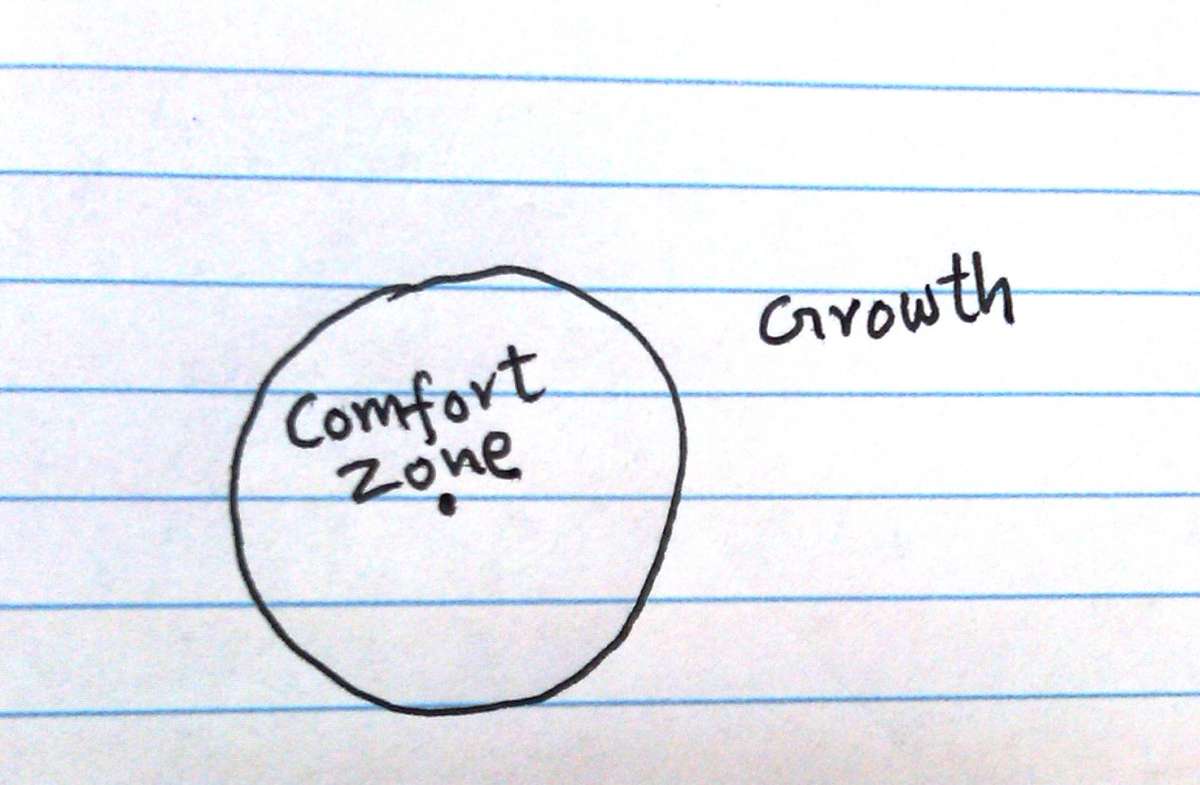 Growth
Comfort
Zone